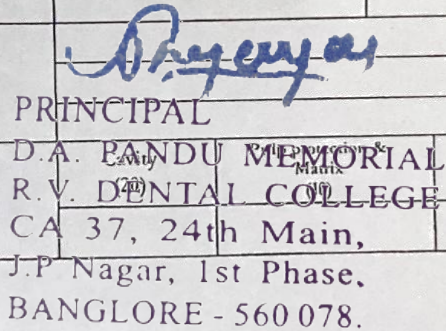 PRINCIPAL
D.A. PANDU MEMORIAL
R.V. DENTAL COLLEGE
CA 37, 24th Main,
J.P Nagar, 1st Phase,
BANGLORE - 560 078.
Cavity
Matrix